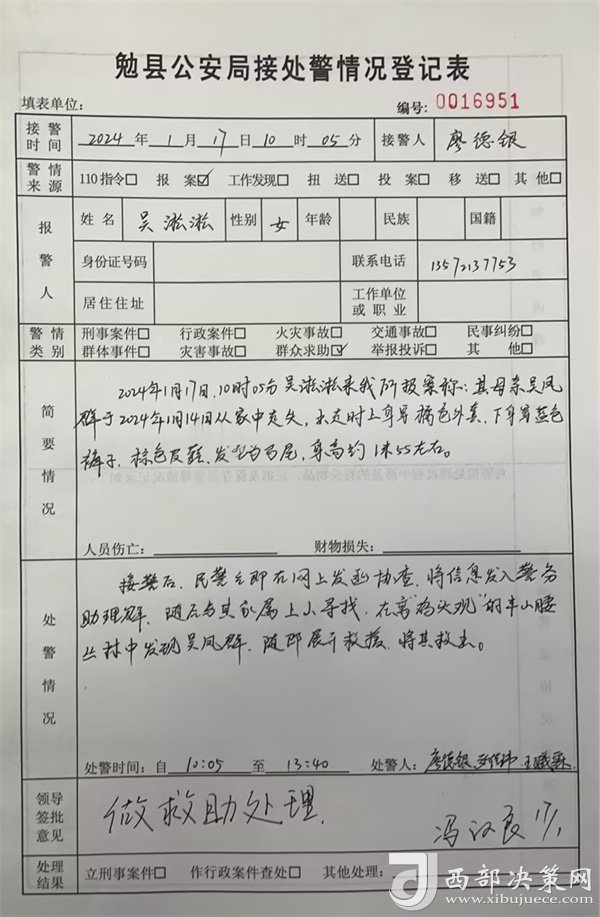 勉县公安局接处警情况登记表
填表单位: 编号: 0016951
接警时间 2024 年 1 月 17 日 10 时 05 分 接警人 廖德银
警情来源 110指令□ 报案☑ 工作发现□ 扭送□ 投案□ 移送□ 其他□
报警人 姓名 吴淞淞 性别 女 年龄 民族 国籍
身份证号码 联系电话 13572137753
居住住址 工作单位或职业
警情类别 刑事案件□ 行政案件□ 火灾事故□ 交通事故□ 民事纠纷□
群体事件□ 灾害事故□ 群众求助☑ 举报投诉□ 其他□
简要情况
2024年1月17日,10时05分吴淞淞来我所报案称:其母亲吴凤
群于2024年1月14日从家中走失,走时上身穿橘色外套、下身穿蓝色
裤子、棕色皮鞋、发型为马尾,身高约1米55左右。
人员伤亡: 财物损失:
处警情况
接警后,民警立即在网上发函协查,将信息发入警务
助理群,随后与其家属上山寻找,在离"的半山腰
丛林中发现吴凤群,随即展开救援,将其救出。
处警时间:自 10:05 至 13:40 处警人: 廖德银
领导签批意见 做救助处理. 冯汉良
处理结果 立刑事案件□ 作行政案件查处□ 其他处理:
西部决策网
www.xibujuece.com